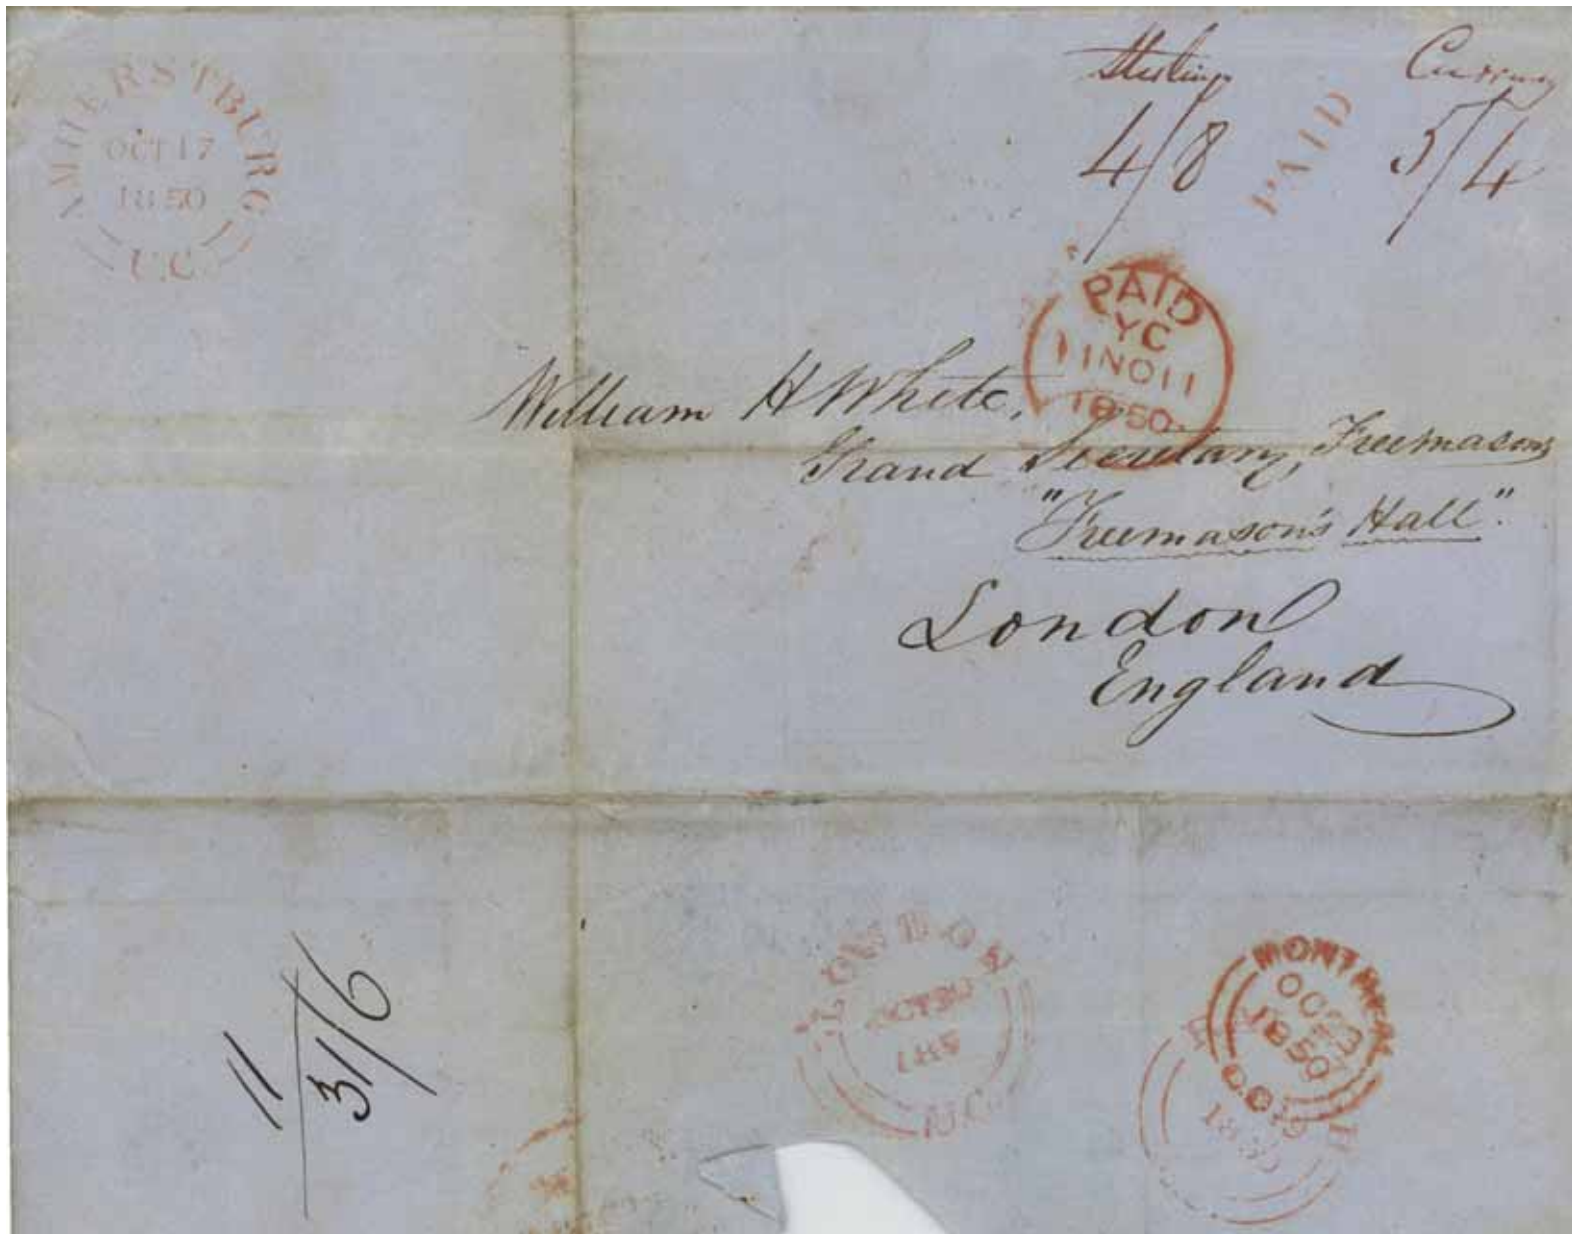 AMHERSTBURG
OCT 17
1850
U.C
Sterling Currency
4/8 PAID 5/4
PAID
YC
11NO11
1850
William H White,
Grand Secretary, Freemasons
"Freemason's Hall".
London
England
11
31/6
LONDON
U.C.
MONTREAL
OC 23
1850